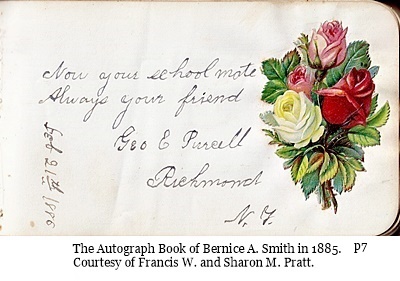 Now your school mate
Always your friend
Geo E Purcell
Richmond
N. Y.
Feb 21th 1886
The Autograph Book of Bernice A. Smith in 1885. P7
Courtesy of Francis W. and Sharon M. Pratt.